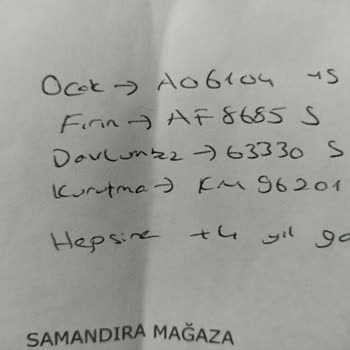 Ocak → AO6104 4S
Fırın → AF8685 S
Davlumbaz → 63330 S
Kurutma → KM96201
Hepsine +4 yıl
SAMANDIRA MAĞAZA